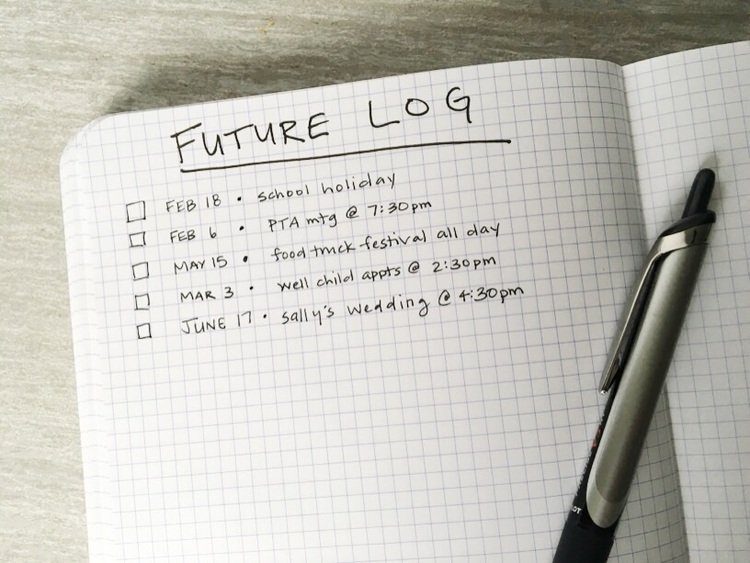 FUTURE LOG
FEB 18 • school holiday
FEB 6 • PTA mtg @ 7:30pm
MAY 15 • food truck festival all day
MAR 3 • well child appts @ 2:30pm
JUNE 17 • sally's wedding @ 4:30pm